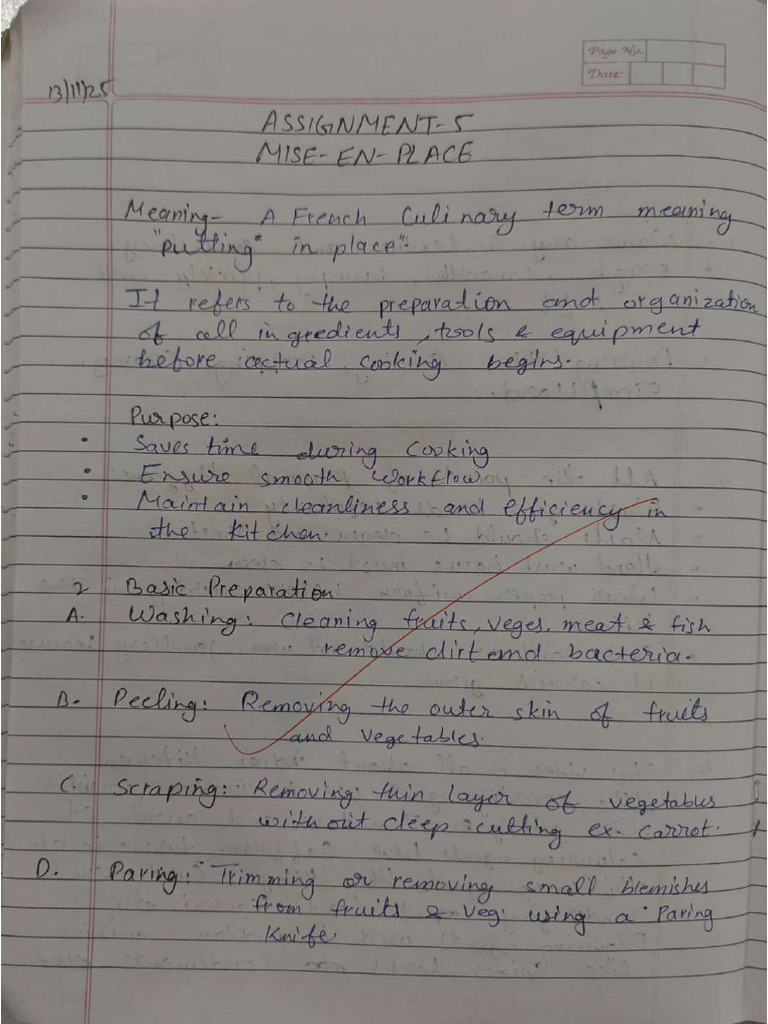 Page No.
Date:
13/11/25
ASSIGNMENT-5
MISE-EN-PLACE
Meaning- A French Culinary term meaning
"putting" in place".
It refers to the preparation and organization
of all ingredients, tools & equipment
before actual cooking begins.
Purpose:
• Saves time during cooking
• Ensure smooth workflow
• Maintain cleanliness and efficiency in
the kitchen.
2 Basic Preparation
A. Washing: Cleaning fruits, veges, meat & fish
remove dirt and bacteria.
B. Peeling: Removing the outer skin of fruits
and vegetables.
C. Scraping: Removing thin layer of vegetables
without deep cutting ex. carrot.
D. Paring: Trimming or removing small blemishes
from fruits & veg. using a Paring
Knife